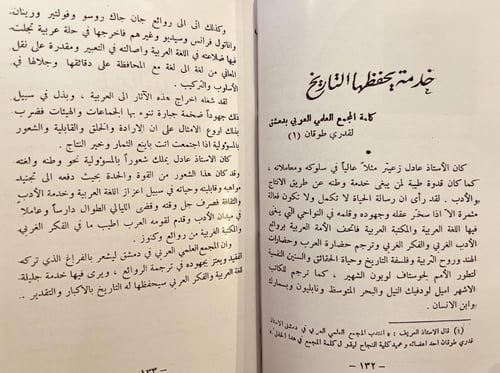 خدمة يحفظها التاريخ
كلمة المجمع العلمي العربي بدمشق
لقدري طوقان (١)
كان الأستاذ عادل زعيتر مثلاً عالياً في سلوكه ومعاملاته ،
كما كان قدوة طيبة لمن يبغى خدمة وطنه عن طريق الانتاج
والأدب . لقد رأى ان رسالة الحياة لا تكمل ولا تكون فعالة
مثمرة الا اذا سخر عقله وجهوده وقلمه في النواحي التي يغنى
فيها اللغة العربية والمكتبة العربية فأتحف الأمة العربية بروائع
الأدب الغربي والفكر الغربي وترجم حضارة العرب وحضارات
الهند وروح التربية وفلسفة التاريخ وحياة الحقائق والسنن النفسية
لتطور الأمم لجوستاف لوبون الشهير . كما ترجم للكاتب
الاشهر اميل لودفيك النيل والبحر المتوسط ونابليون وبسمارك
وابن الانسان .
(١) قال الاستاذ العريف : « انتدب المجمع العلمي العربي في دمشق الاستاذ
قدري طوقان احد اعضائه وعميد كلية النجاح ليقول كلمة المجمع في هذا الحفل.»
— ١٣٢ —
وكذلك اتى الى روائع جان جاك روسو وفولتير ورينان
واناتول فرانس وسيديو وغيرهم فاخرجها في حلة عربية تجلت
فيها ضلاعته في اللغة العربية واصالته في التعبير ومقدرة على نقل
المعاني من لغة الى لغة مع المحافظة على دقائقها وجلالها في
الأسلوب والتركيب .
لقد شغله اخراج هذه الآثار الى العربية ، وبذل في سبيل
ذلك جهوداً ضخمة جبارة تنوء بها الجماعات والهيئات فضرب
بذلك اروع الامثال على ان الإرادة والخلق والقابلية والشعور
بالمسؤولية اذا اجتمعت اتت بأينع الثمار وخير النتاج .
كان الاستاذ عادل يملك شعوراً بالمسؤولية نحو وطنه ولغته
وقد كان هذا الشعور من القوة والحدة بحيث دفعه الى تجنيد
مواهبه وقابليته وحياته في سبيل اعزاز اللغة العربية وخدمة الأدب
والثقافة فصرف جل وقته وقضى الليالي الطوال دارساً وعاملاً
في ميدان الأدب وقدم لقومه العرب اطيب ما في الفكر الغربي
والمكتبة الغربية من روائع وكنوز .
وان المجمع العلمي العربي في دمشق ليشعر بالفراغ الذي تركه
الفقيد ويعتز بجهوده في ترجمة الروائع ، ويرى فيها خدمة جليلة
للغة العربية والفكر العربي سيحفظها له التاريخ بالاكبار والتقدير ..
— ١٣٣ —